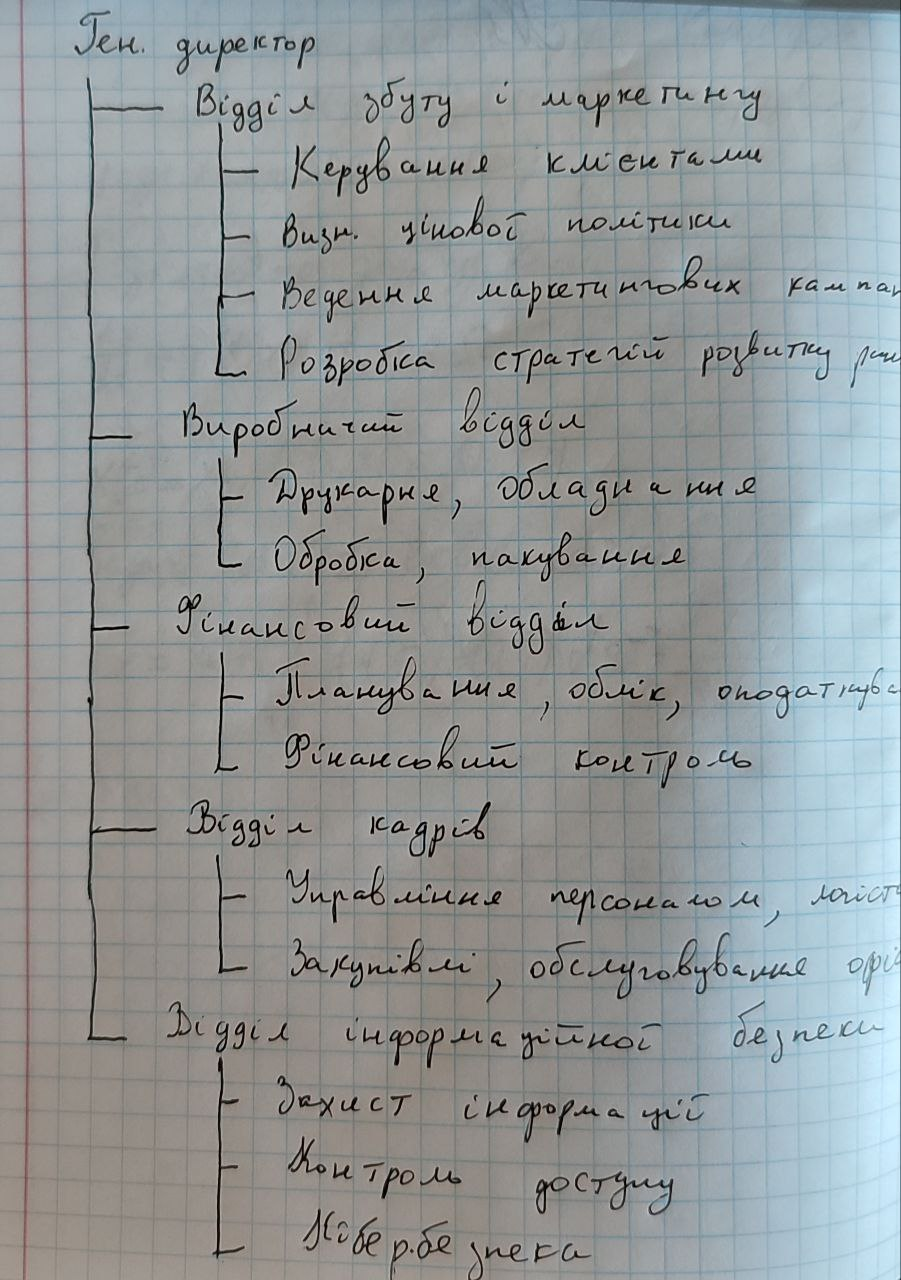 Ген. директор
Відділ збуту і маркетингу
Керування клієнтами
Визн. цінової політики
Ведення маркетингових кампан
Розробка стратегій розвитку рин
Виробничий відділ
Друкарня, обладнання
Обробка, пакування
Фінансовий відділ
Планування, облік, оподаткува
Фінансовий контроль
Відділ кадрів
Управління персоналом, логіст
Закупівлі, обслуговування офіс
Відділ інформаційної безпеки
Захист інформації
Контроль доступу
Кібер.безпека